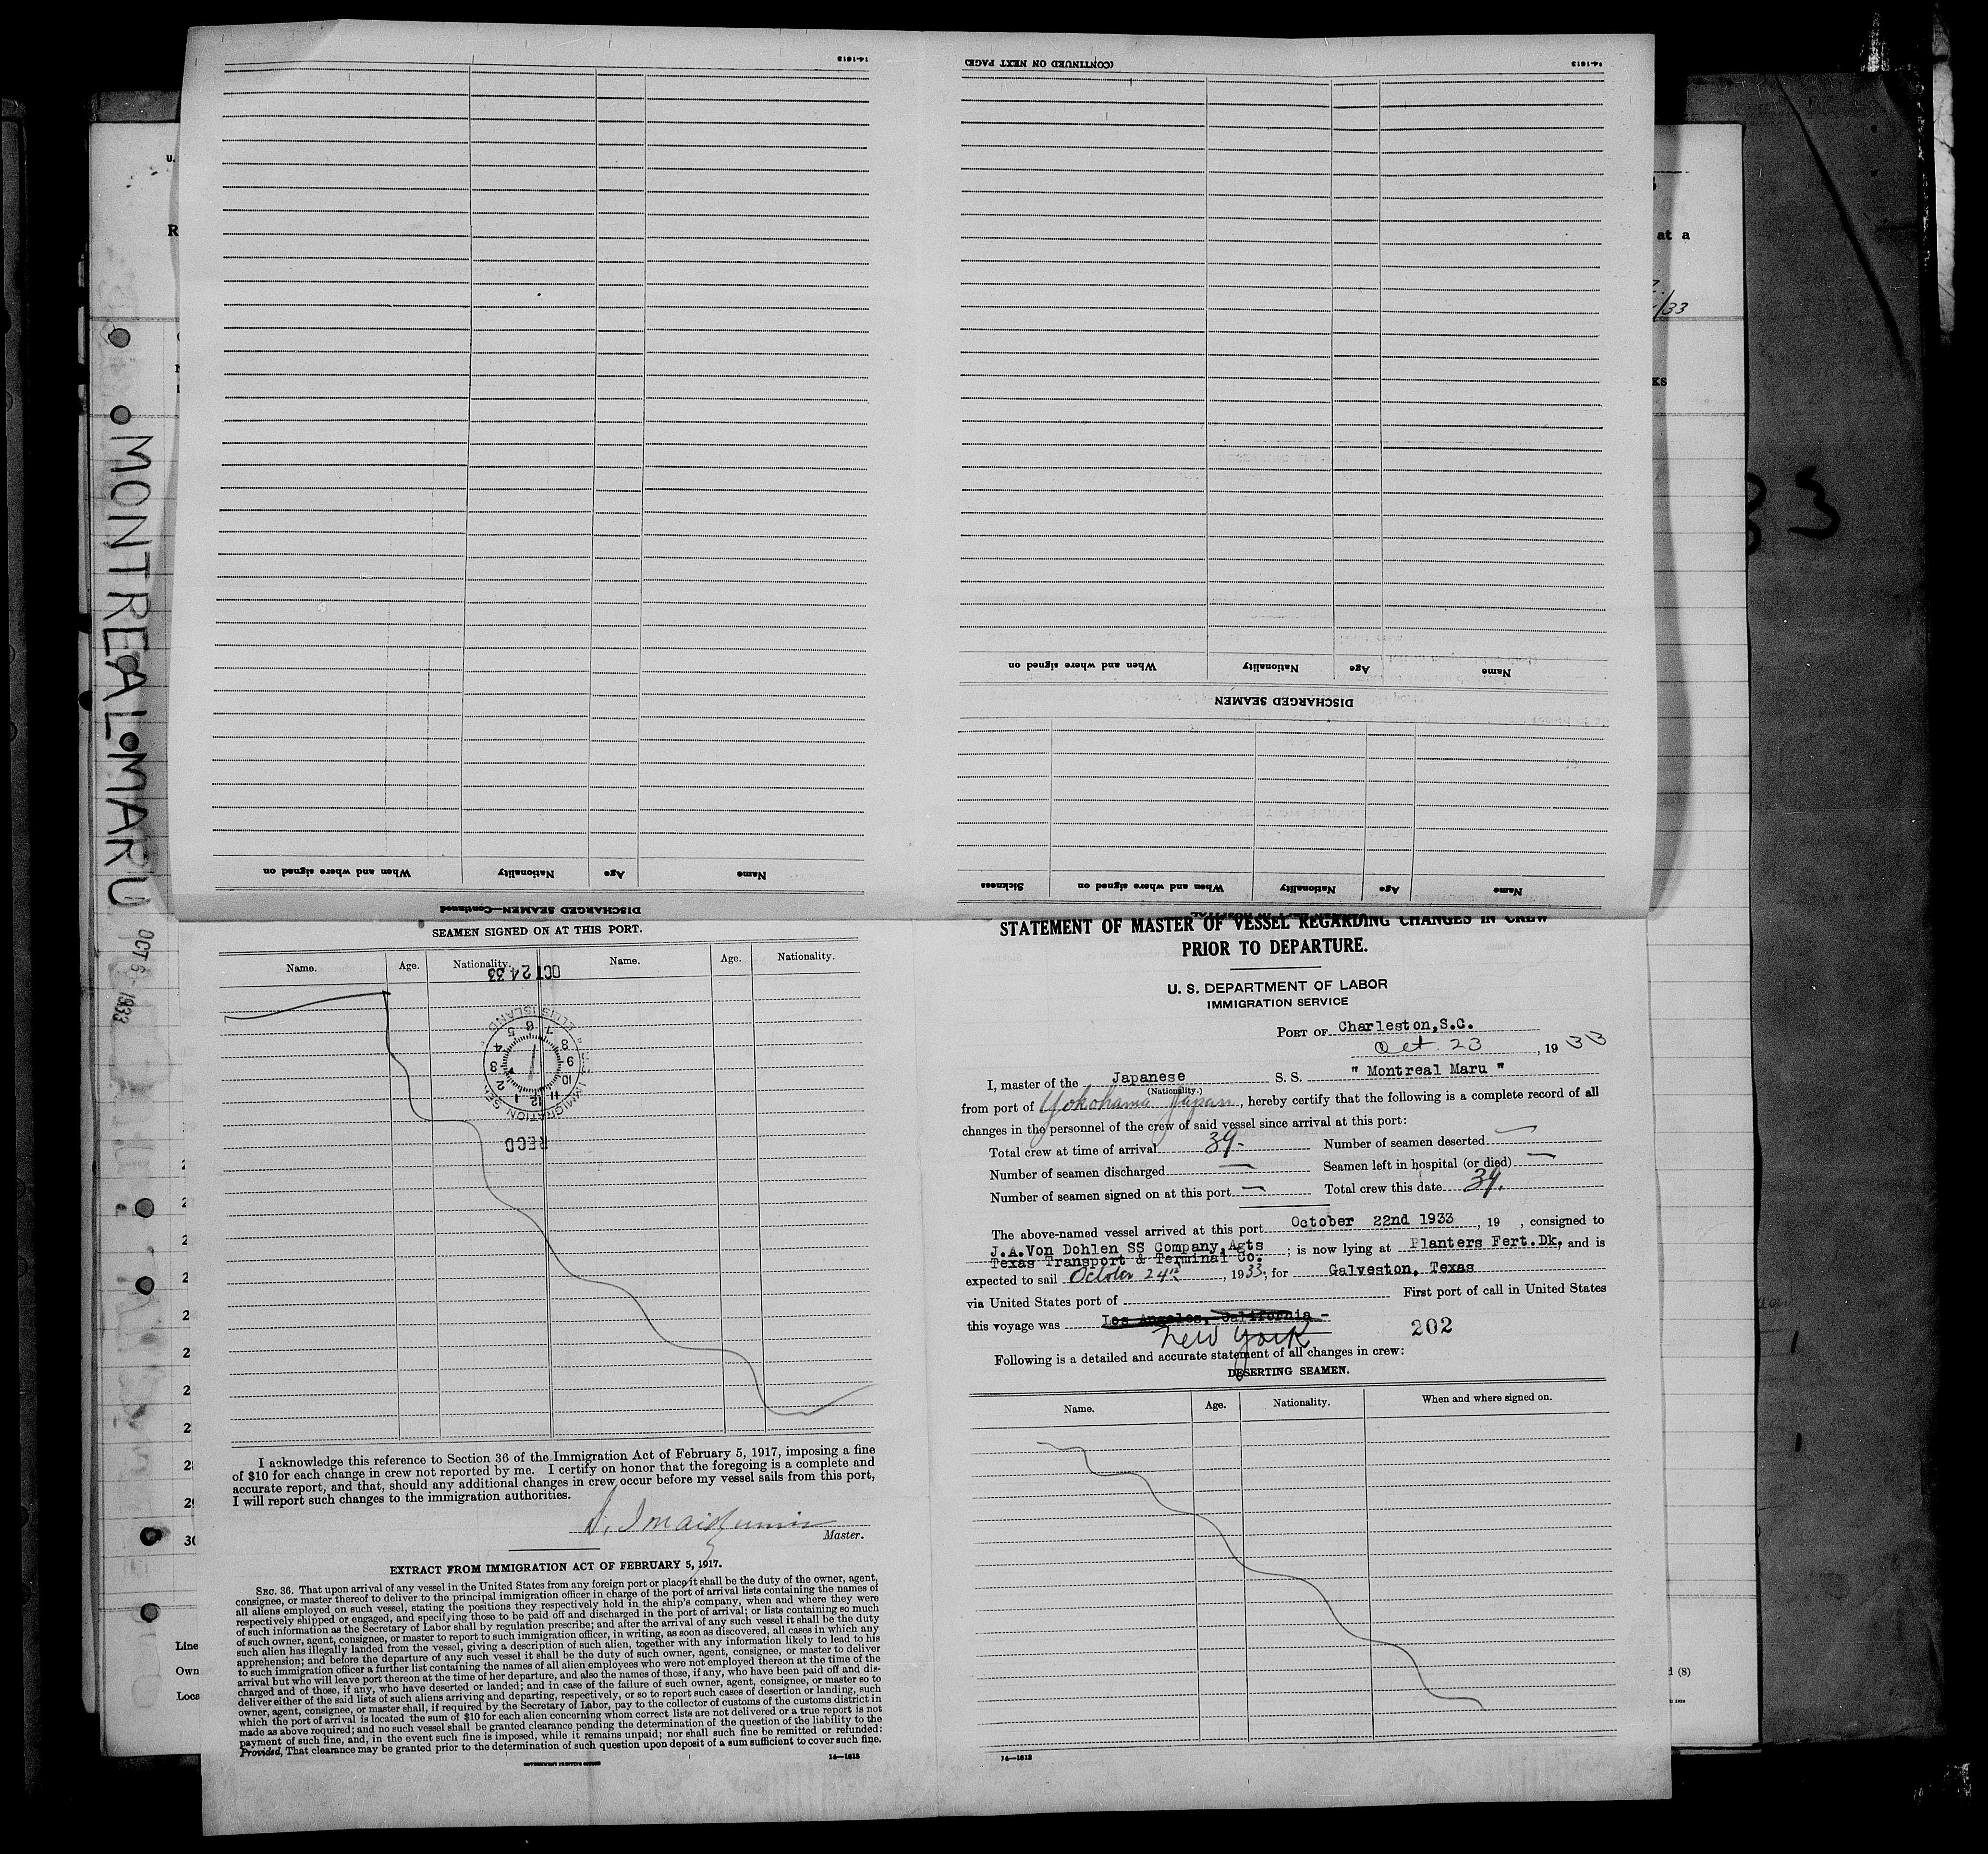 14-1613
(CONTINUED ON NEXT PAGE)
14-1613
When and where signed on
Nationality
Age
Name
DISCHARGED SEAMEN
Sickness
When and where signed on
Nationality
Age
Name
When and where signed on
Nationality
Age
Name
DISCHARGED SEAMEN—Continued
MONTREAL MARU
OCT 6 - 1933
U.
R
at a
/33
KS
83
SEAMEN SIGNED ON AT THIS PORT.
Name.
Age.
Nationality.
Name.
Age.
Nationality.
OCT 24 33
ELLIS ISLAND
RECD
I acknowledge this reference to Section 36 of the Immigration Act of February 5, 1917, imposing a fine
of $10 for each change in crew not reported by me. I certify on honor that the foregoing is a complete and
accurate report, and that, should any additional changes in crew occur before my vessel sails from this port,
I will report such changes to the immigration authorities.
Master.
EXTRACT FROM IMMIGRATION ACT OF FEBRUARY 5, 1917.
SEC. 36. That upon arrival of any vessel in the United States from any foreign port or place it shall be the duty of the owner, agent,
consignee, or master thereof to deliver to the principal immigration officer in charge of the port of arrival lists containing the names of
all aliens employed on such vessel, stating the positions they respectively hold in the ship's company, when and where they were
respectively shipped or engaged, and specifying those to be paid off and discharged in the port of arrival; or lists containing so much
of such information as the Secretary of Labor shall by regulation prescribe; and after the arrival of any such vessel it shall be the duty
of such owner, agent, consignee, or master to report to such immigration officer, in writing, as soon as discovered, all cases in which any
such alien has illegally landed from the vessel, giving a description of such alien, together with any information likely to lead to his
apprehension; and before the departure of any such vessel it shall be the duty of such owner, agent, consignee, or master to deliver
to such immigration officer a further list containing the names of all alien employees who were not employed thereon at the time of the
arrival but who will leave port thereon at the time of her departure, and also the names of those, if any, who have been paid off and dis-
charged and of those, if any, who have deserted or landed; and in case of the failure of such owner, agent, consignee, or master so to
deliver either of the said lists of such aliens arriving and departing, respectively, or so to report such cases of desertion or landing, such
owner, agent, consignee, or master shall, if required by the Secretary of Labor, pay to the collector of customs of the customs district in
which the port of arrival is located the sum of $10 for each alien concerning whom correct lists are not delivered or a true report is not
made as above required; and no such vessel shall be granted clearance pending the determination of the question of the liability to the
payment of such fine, and, in the event such fine is imposed, while it remains unpaid; nor shall such fine be remitted or refunded:
Provided, That clearance may be granted prior to the determination of such question upon deposit of a sum sufficient to cover such fine.
GOVERNMENT PRINTING OFFICE
14—1613
STATEMENT OF MASTER OF VESSEL REGARDING CHANGES IN CREW
PRIOR TO DEPARTURE.
U. S. DEPARTMENT OF LABOR
IMMIGRATION SERVICE
PORT OF Charleston,S.C.
Oct. 23, 1933
I, master of the Japanese S. S. " Montreal Maru "
(Nationality.)
from port of Yokohama Japan, hereby certify that the following is a complete record of all
changes in the personnel of the crew of said vessel since arrival at this port:
Total crew at time of arrival 39.
Number of seamen deserted —
Number of seamen discharged —
Seamen left in hospital (or died) —
Number of seamen signed on at this port —
Total crew this date 39.
The above-named vessel arrived at this port October 22nd 1933, 19 , consigned to
J.A.Von Dohlen SS Company,Agts
Texas Transport & Terminal Co. ; is now lying at Planters Fert.Dk, and is
expected to sail October 24th, 1933, for Galveston, Texas
via United States port of First port of call in United States
this voyage was Los Angeles, California -
New York
202
Following is a detailed and accurate statement of all changes in crew:
DESERTING SEAMEN.
Name.
Age.
Nationality.
When and where signed on.
14—1613
Line
Own
Loca
(8)